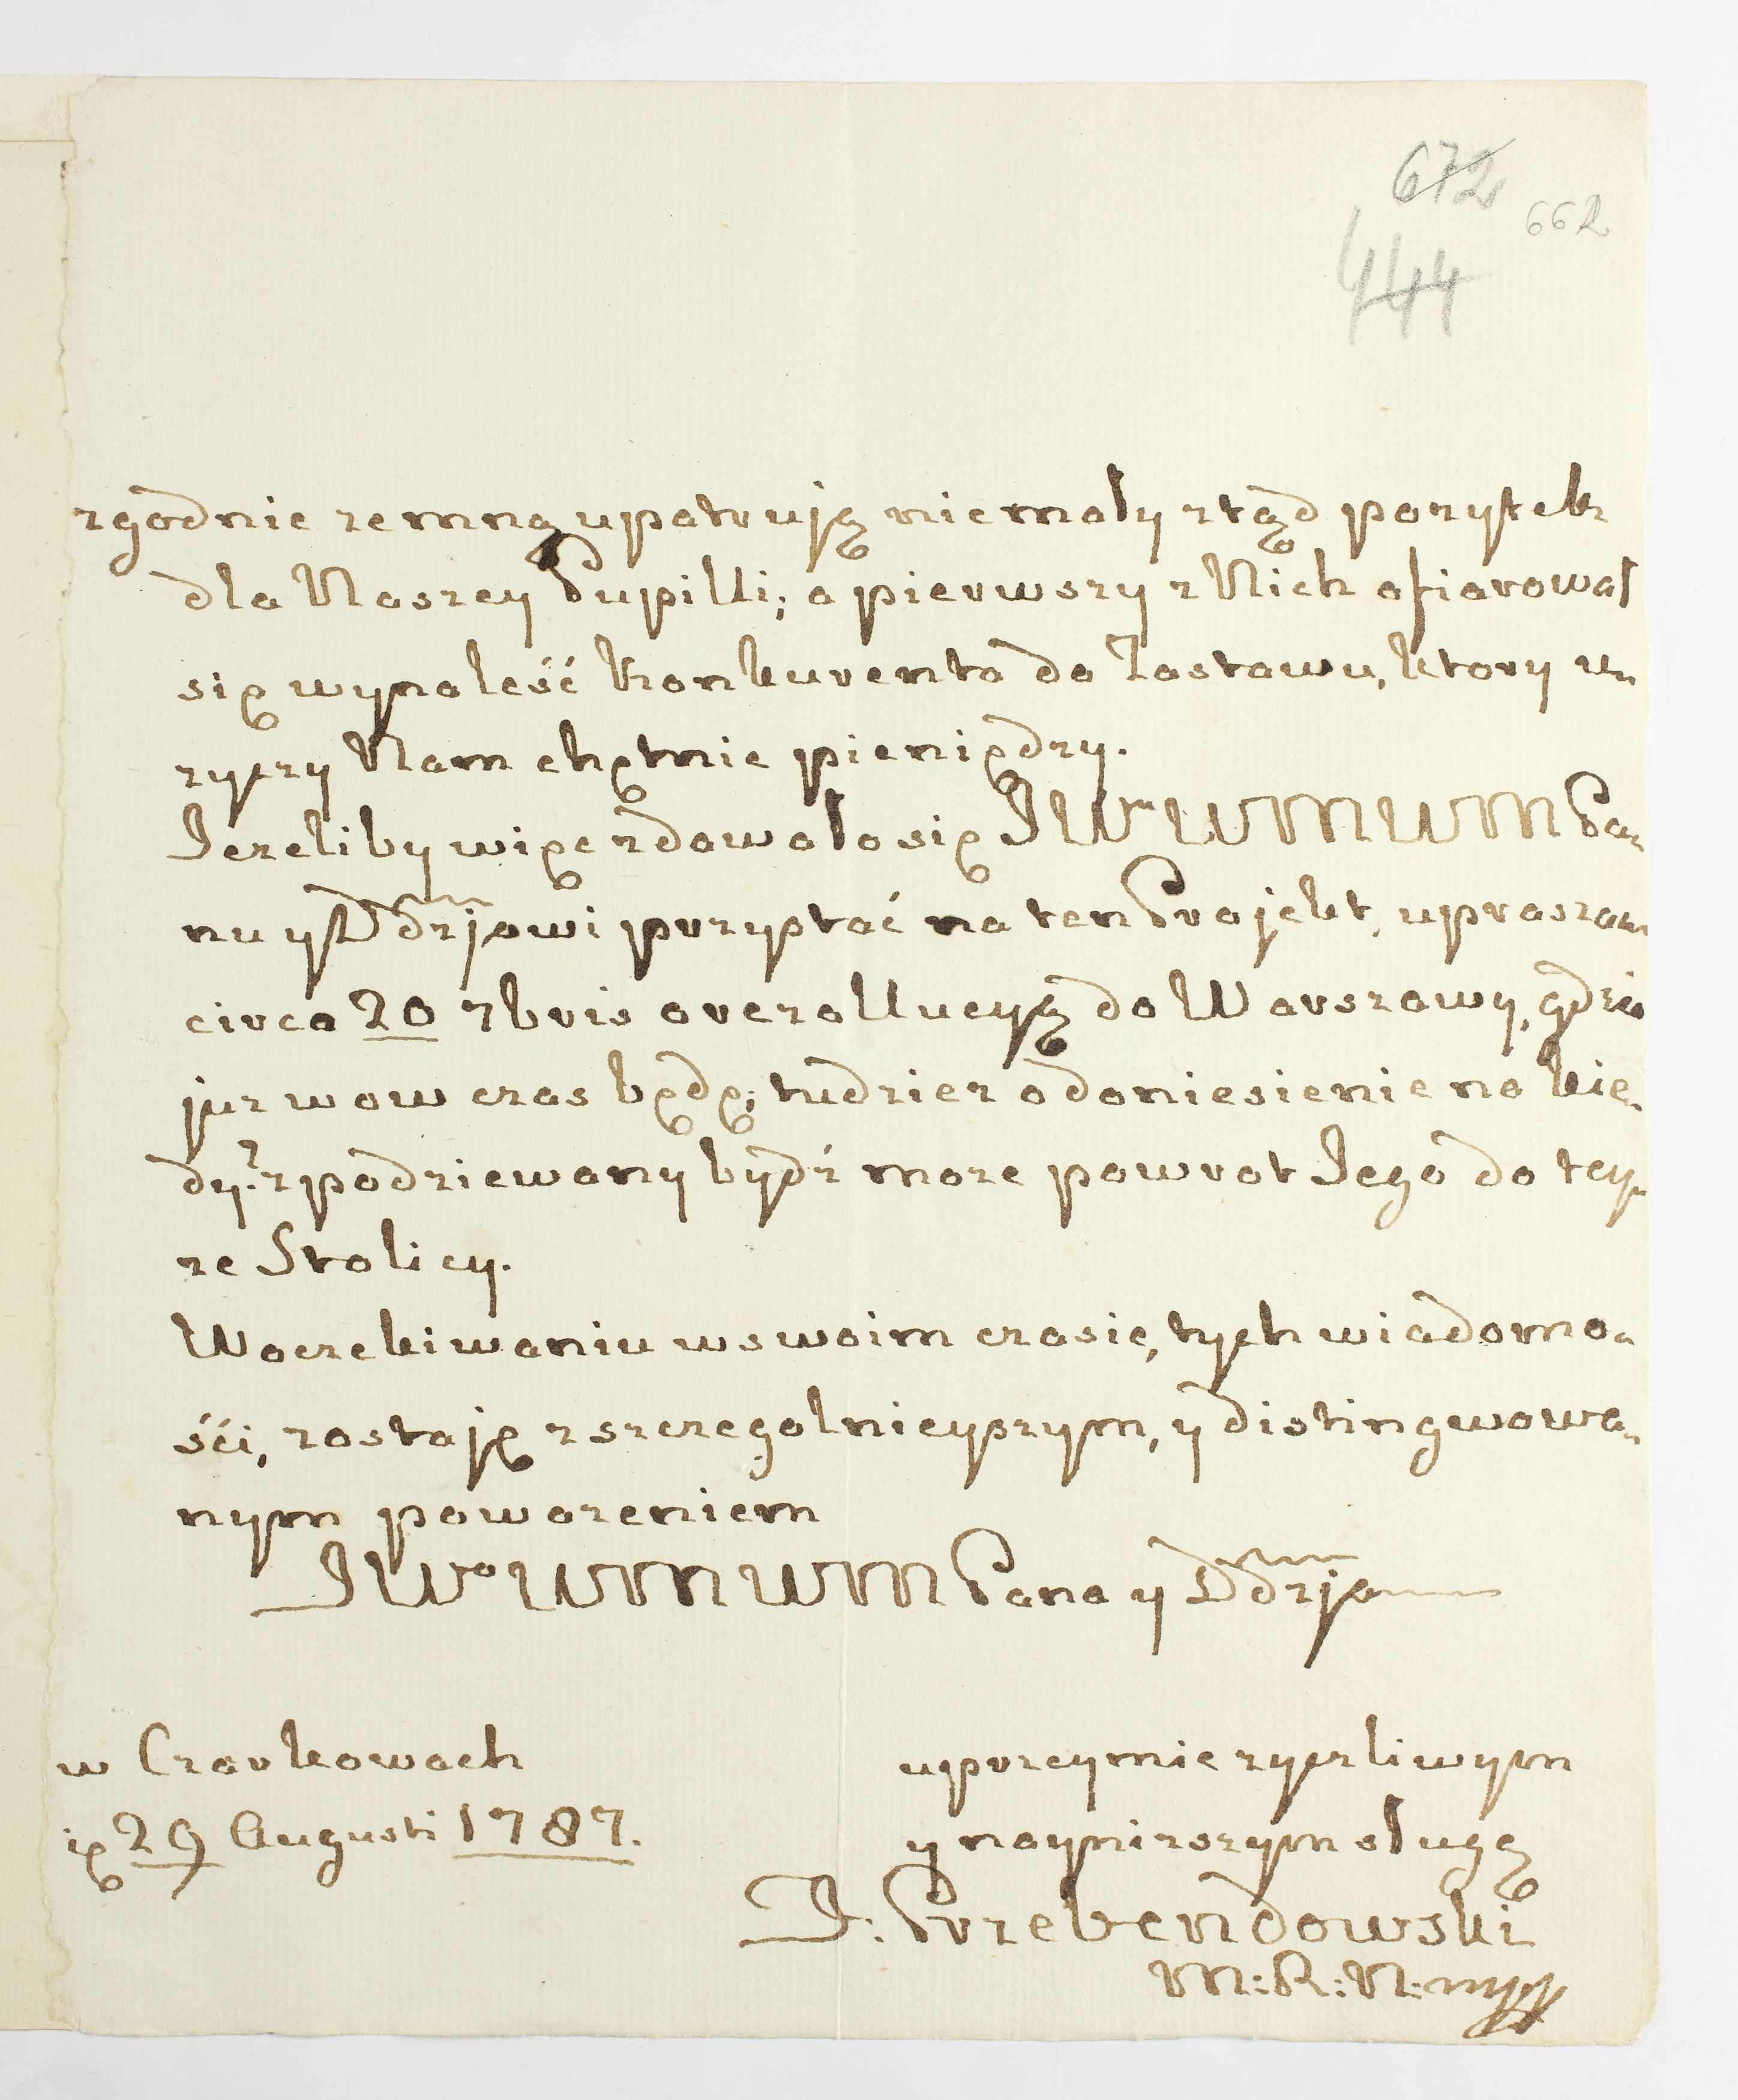 672
662
444
zgodnie zemną upatrują niemały ztąd pozytek
dla Naszey Pupilli; a pierwszy z Nich ofiarował
się wynaleść Konkurenta do Zastawu, ktory u-
zyczy Nam chętnie pieniędzy.
Jezeliby więc zdawało się JWmu WMMWM Pa-
nu y Ddzjowi przystać na ten Projekt, upraszam
circa 20 7bris o rezollucyą do Warszawy, gdzie
juz wow czas będę; tudziez o doniesienie na kie-
dy? zpodziewany bydź moze powrot Jego do tey-
ze Stolicy.
W oczekiwaniu w swoim czasie, tych wiadomo-
ści, zostaję z szczegolnieyszym, y distingwowa-
nym powazeniem
JWo WMMWM Pana y Ddzja
w Czarkowach
ię 29 Augusti 1787.
uprzeymie zyczliwym
y nayniższym sługą
J: Przebendowski
M: R: N: mpp